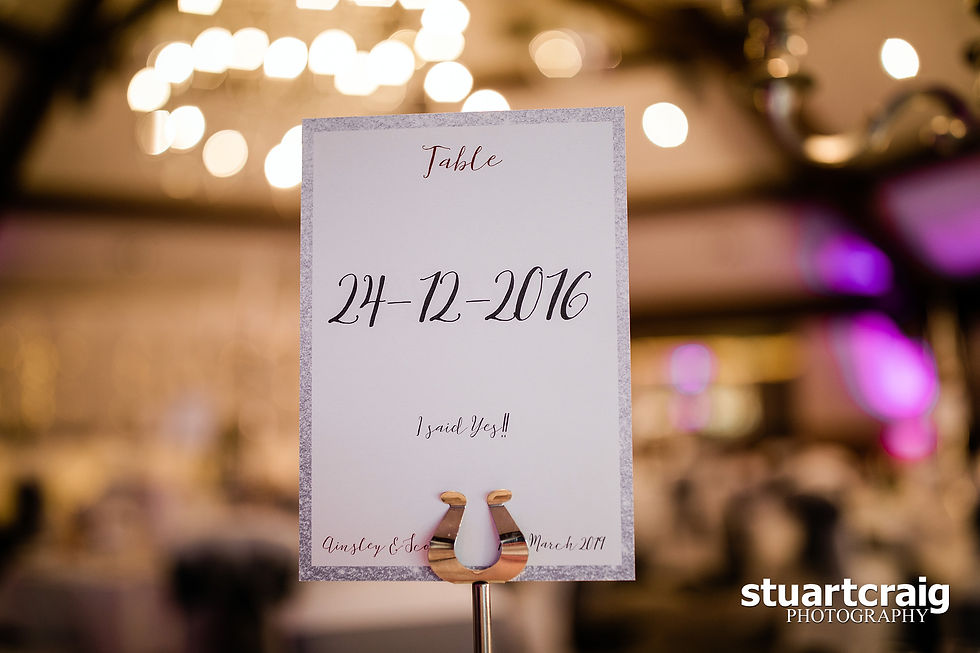 Table
24-12-2016
I said Yes!!
Ainsley & Sco March 2019
stuartcraig
PHOTOGRAPHY